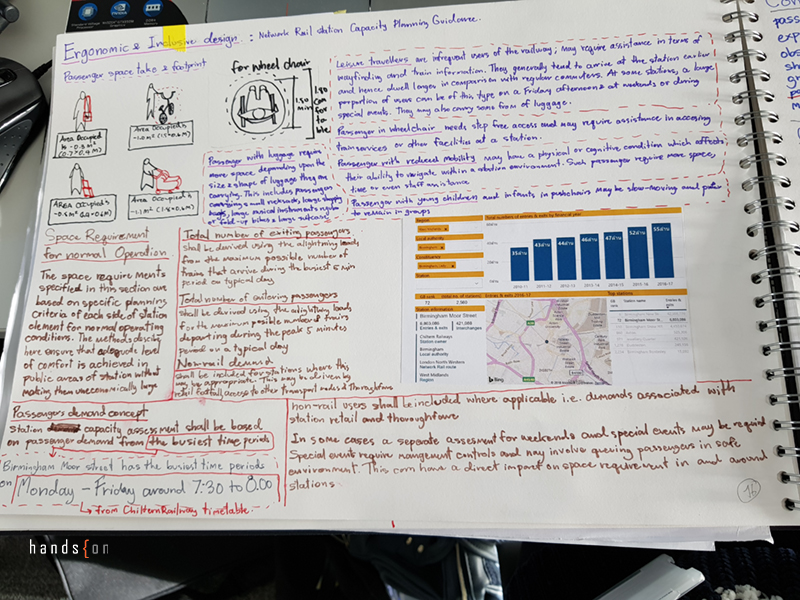 Ergonomic & Inclusive design : Network Rail station Capacity Planning Guidance.
Passenger space take & footprint
for wheel chair
1.50
min
1.80
com
for
to
whe
Area Occupied
Area Occupied is
Area Occupied is
Area Occupied is
Passenger with luggage require
more space depending upon the
size & shape of luggage they are
carrying. This includes passengers
Leisure travellers are infrequent users of the railway; may require assistance in terms of
wayfinding and train information. They generally tend to arrive at the station earlier
and hence dwell longer in comparison with regular commuters. At some stations, a large
proportion of users can be of this type on a Friday afternoon & at weekends or during
special events. They may also carry some from of luggage.
Passenger in wheelchair needs step free access and may require assistance in accessing
train services or other facilities at a station.
Passenger with reduced Mobility may have a physical or cognitive condition which affects
their ability to navigate within a station environment. Such passenger require more space,
time or even staff assistance.
Passenger with young children and infants, in pushchairs may be slow-moving and
to remain in groups
Space Requirement
for normal Operation
The space requirements
specified in this section are
based on specific planning
criteria of each side of station
element for normal operating
conditions. The methods
here ensure that adequate level
of comfort is achieved in
public areas of station without
making them uneconomically large
Total number of exiting passengers
shall be derived using the alighting loads
from the maximum possible number of
trains that arrive during the busiest 5 min
period on typical day
Total number of entering passengers
for the maximum possible number of trains
departing during the peak 5 minutes
period on a typical day
Non-rail demand
shall be included for stations where this
may be appropriate. This may be driven by
retail footfall, access to other transport modes & thoroughfares
Total numbers of entries & exits by financial year
35
43
44
46
47
52
55
2010-11
2011-12
2012-13
2013-14
2014-15
2015-16
2016-17
Station information
Birmingham Moor Street
Entries & exits
Interchanges
Chiltern Railways
Station owner
Birmingham
Local authority
London North Western
Network Rail route
West Midlands
Region
Top stations
Station name
bing
Passengers demand concept
station capacity assessment shall be based
on passenger demand from the busiest time periods
Birmingham Moor street has the busiest time periods
on Monday - Friday around 7:30 to 8.00
from Chiltern Railway timetable.
non-rail users shall be included where applicable i.e. demands associated with
station retail and thoroughfare
In some cases a separate assesment for weekends and special events may be requird
Special events require mangement controls and may involve queuing passengers in safe
environment. This can have a direct impact on space requirement in and around
stations.
16
hands{on